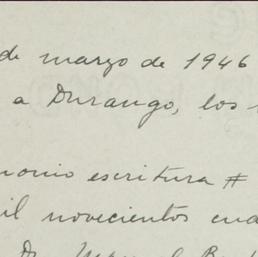 de marzo de 1946
a Durango, los
escritura #
novecientos